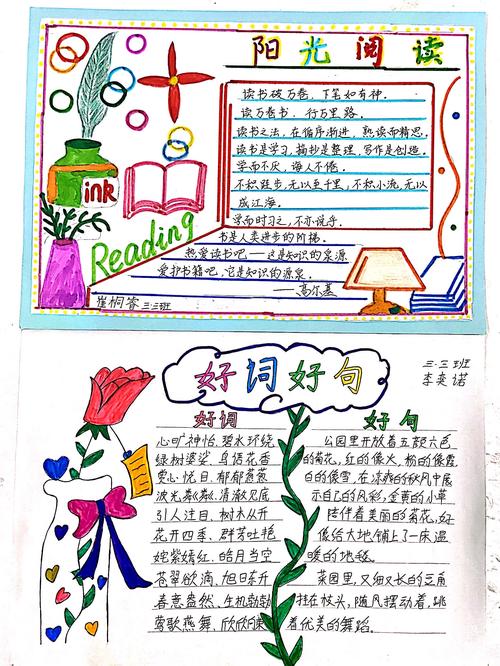 阳光阅读
读书破万卷，下笔如有神.
读万卷书，行万里路.
读书之法，在循序渐进，熟读而精思.
读书是学习，摘抄是整理，写作是创造.
学而不厌，诲人不倦.
不积跬步，无以至千里，不积小流，无以
成江海.
学而时习之，不亦说乎.
书是人类进步的阶梯.
热爱读书吧——这是知识的泉源
爱护书籍吧，它是知识的源泉.
——高尔基
ink
Reading
崔桐睿 三.三班
好词好句
三.三班
李奕诺
好词
心旷神怡 碧水环绕
绿树婆娑 鸟语花香
赏心悦目 郁郁苍苍
波光粼粼 清澈见底
引人注目 树木丛开
花开四季 群芳吐艳
姹紫嫣红 皓月当空
苍翠欲滴 旭日东升
春意盎然 生机勃勃
莺歌燕舞
好句
公园里开放着五颜六色
的菊花，红的像火，粉的像霞，
白的像雪，在凉爽的秋风中展
示自己的风彩，金黄的小草
陪伴着美丽的菊花，好
像给大地铺上了一床温
暖的地毯.
菜园里，又细又长的豆角
挂在枝头，随风摆动着，跳
着优美的舞蹈.